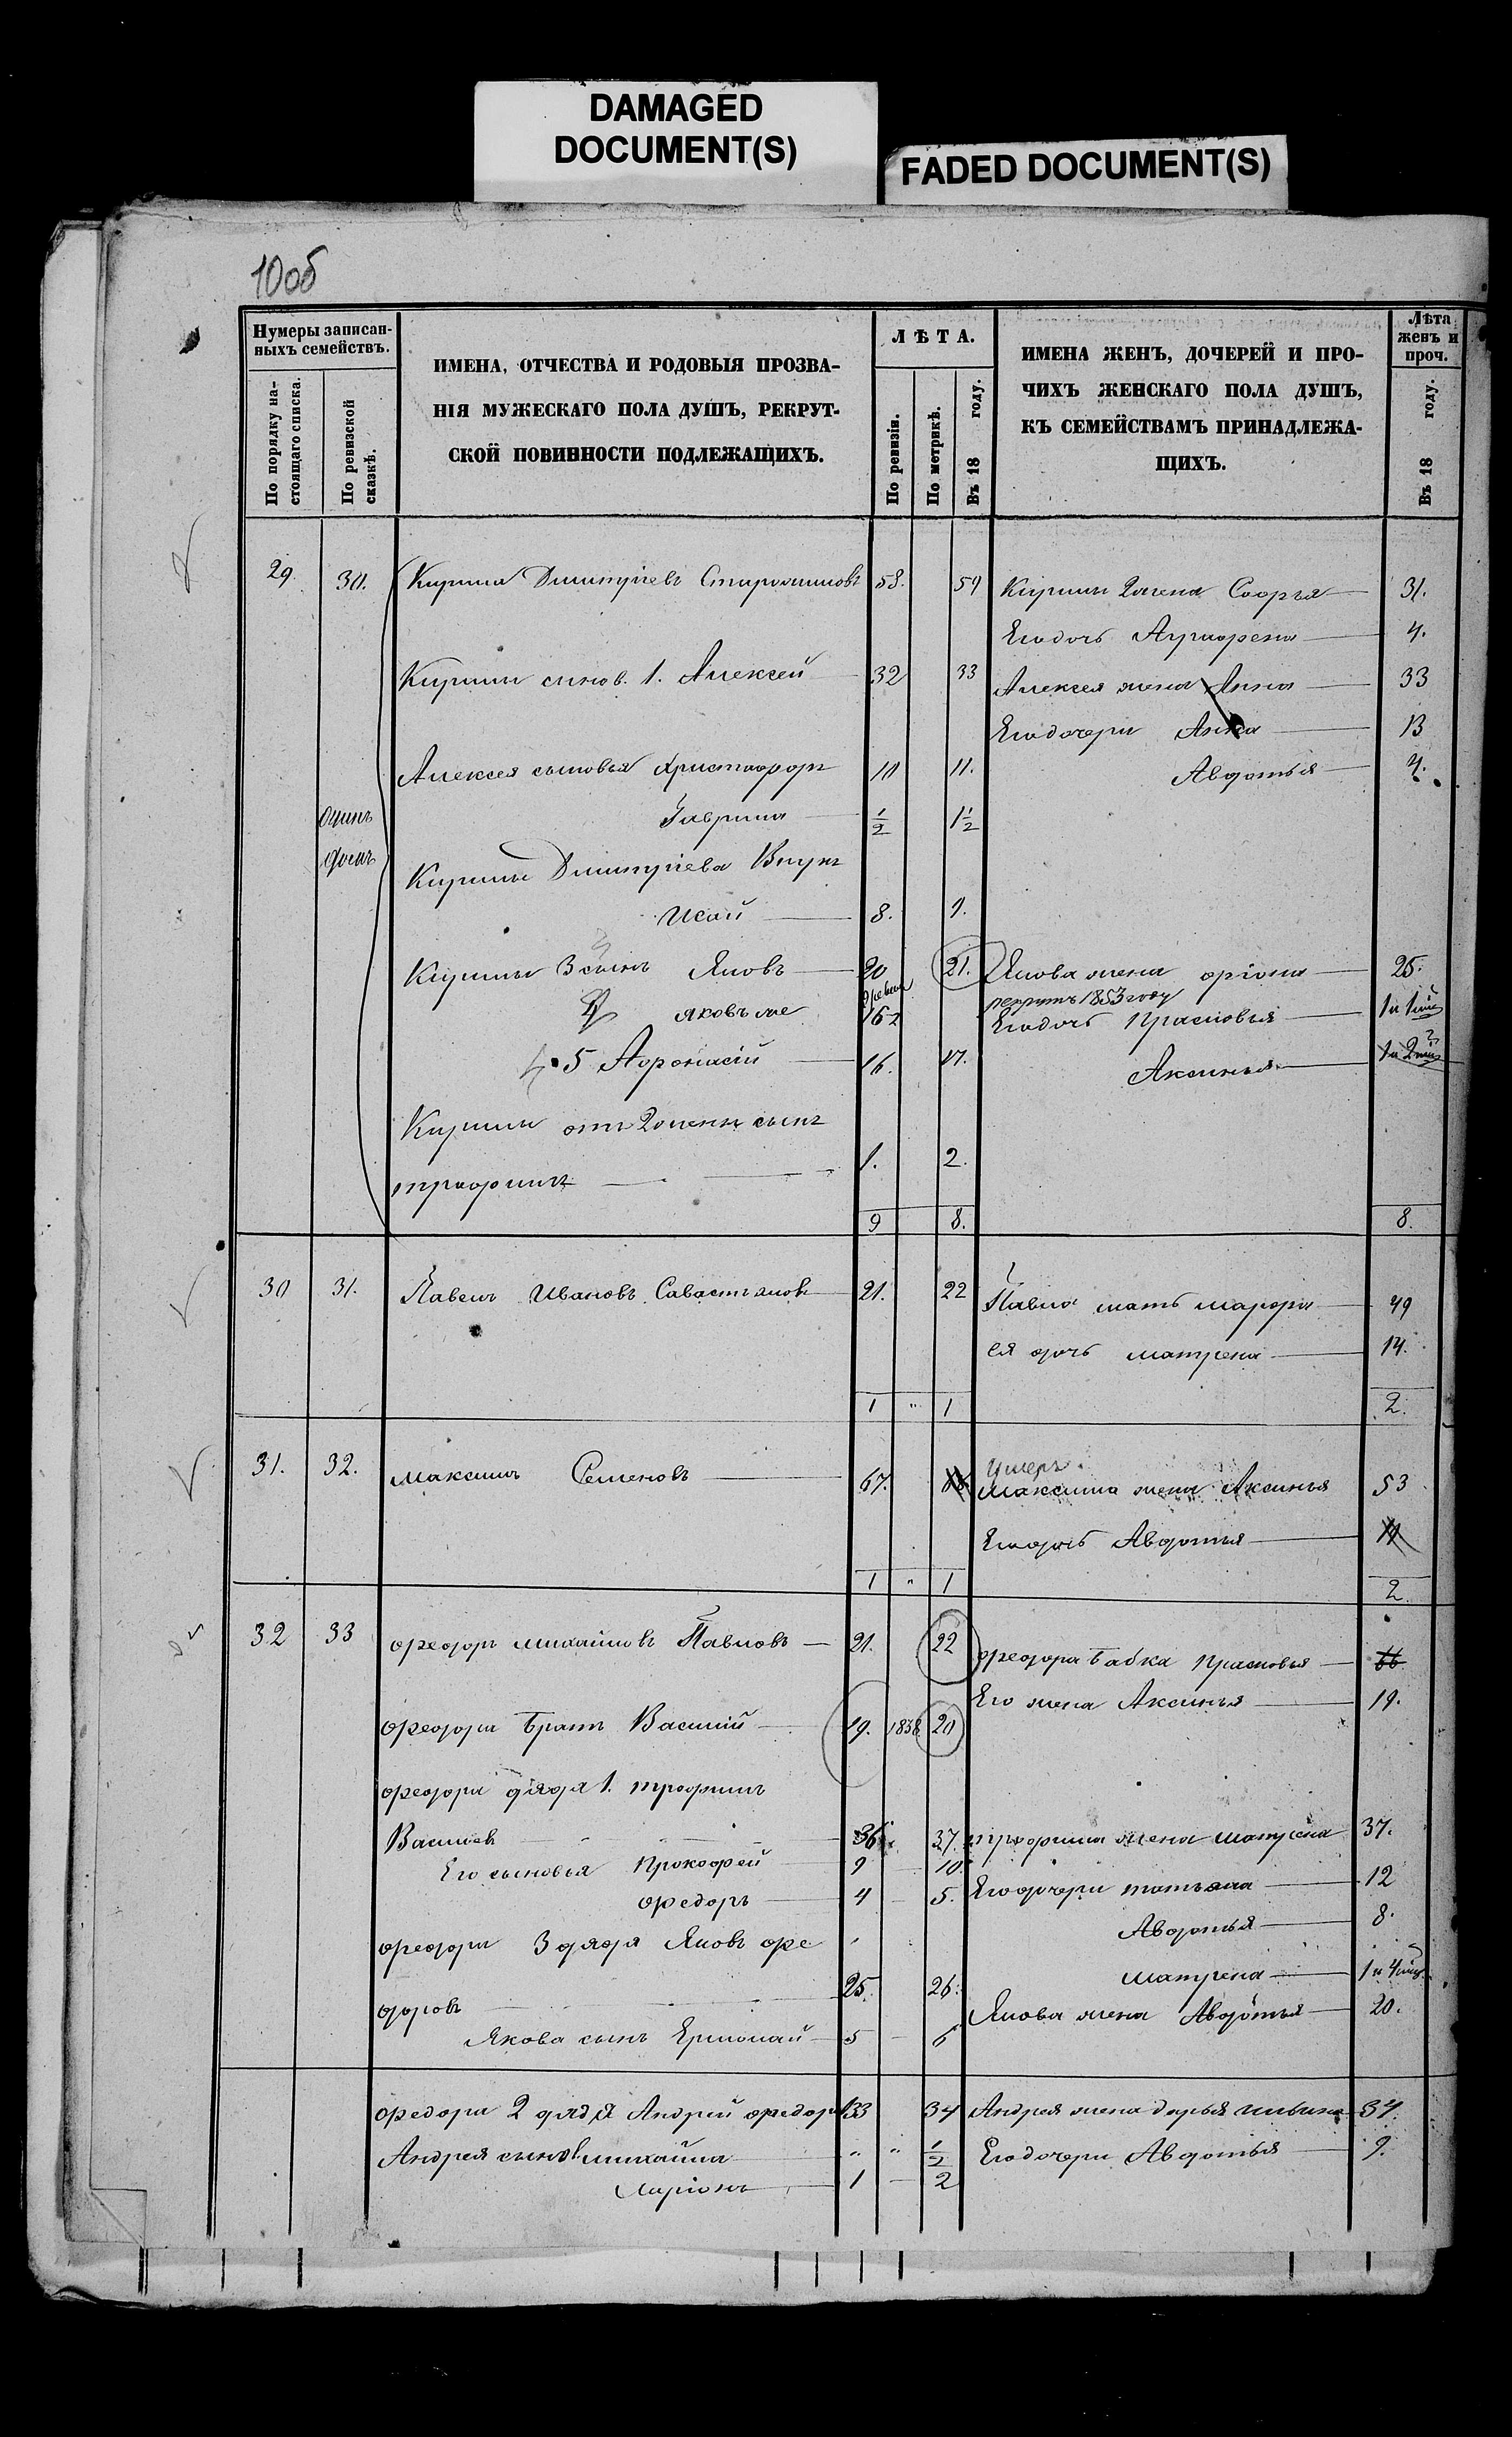 DAMAGED
DOCUMENT(S)
FADED DOCUMENT(S)
10об
Нумеры записан-
ныхъ семействъ.
По порядку на-
стоящаго списка.
По ревизской
сказкѣ.
ИМЕНА, ОТЧЕСТВА И РОДОВЫЯ ПРОЗВА-
НІЯ МУЖЕСКАГО ПОЛА ДУШЪ, РЕКРУТ-
СКОЙ ПОВИННОСТИ ПОДЛЕЖАЩИХЪ.
ЛѢТА.
По ревизіи.
По метрикѣ.
Въ 18 году.
ИМЕНА ЖЕНЪ, ДОЧЕРЕЙ И ПРО-
ЧИХЪ ЖЕНСКАГО ПОЛА ДУШЪ,
КЪ СЕМЕЙСТВАМЪ ПРИНАДЛЕЖА-
ЩИХЪ.
Лѣта
женъ и
проч.
Въ 18 году.
29. 30. Кирила Димитріевъ 58. 59 Кирилы 2 жена Софья 31.
Его дочь Аграфена 4.
Кирилы сынов. 1. Алексей 32 33 Алексея жена Анна 33
Его дочери Анна 13
Алексея сыновья Христофоръ 10 11. Авдотья 4.
Гаврила 1/2 1 1/2
Кирилы Димитріева Внукъ
Исай 8. 9.
Кирилы 3 сынъ Яковъ 20 21. Якова жена 25.
Яковъ же 16 рекрутъ 1853 году
Его дочь Прасковья 1 и 1
5 Афонасій 16. 17. Аксинья 1 и 2
Кирилы отъ 2 жены сынъ
трафимъ 1. 2.
9 8. 8.
30 31. Павелъ Ивановъ Савастьянов 21. 22 Павла мать марфа 49
ея дочь матрена 14.
1 " 1 2.
31. 32. максимъ Семеновъ 67. 68 умеръ.
максима жена Аксинья 53
Его дочь Авдотья 11
1 " 1 2
32 33 Федоръ михайловъ Павловъ 21. 22 Федора бабка прасковья 66
Его жена Аксинья 19.
Федора братъ Василій 19. 1838 20
Федора дядя 1. трофимъ
Васильев 36. 37. трофима жена матрена 37.
Его сыновья прокофей 9 10. Его дочери татьяна 12
Федоръ 4 5. Авдотья 8.
Федора 3 дядя Яковъ Фе
доровъ 25. 26. матрена 1 и 4
Якова жена Авдотья 20.
Якова сынъ Ермолай 5 6
Федора 2 дядя Андрей Федоров 33 34 Андрея жена дарья 34.
Андрея сынов. михайла " " 1/2 Его дочери Авдотья 9.
Ларіонъ 1 2